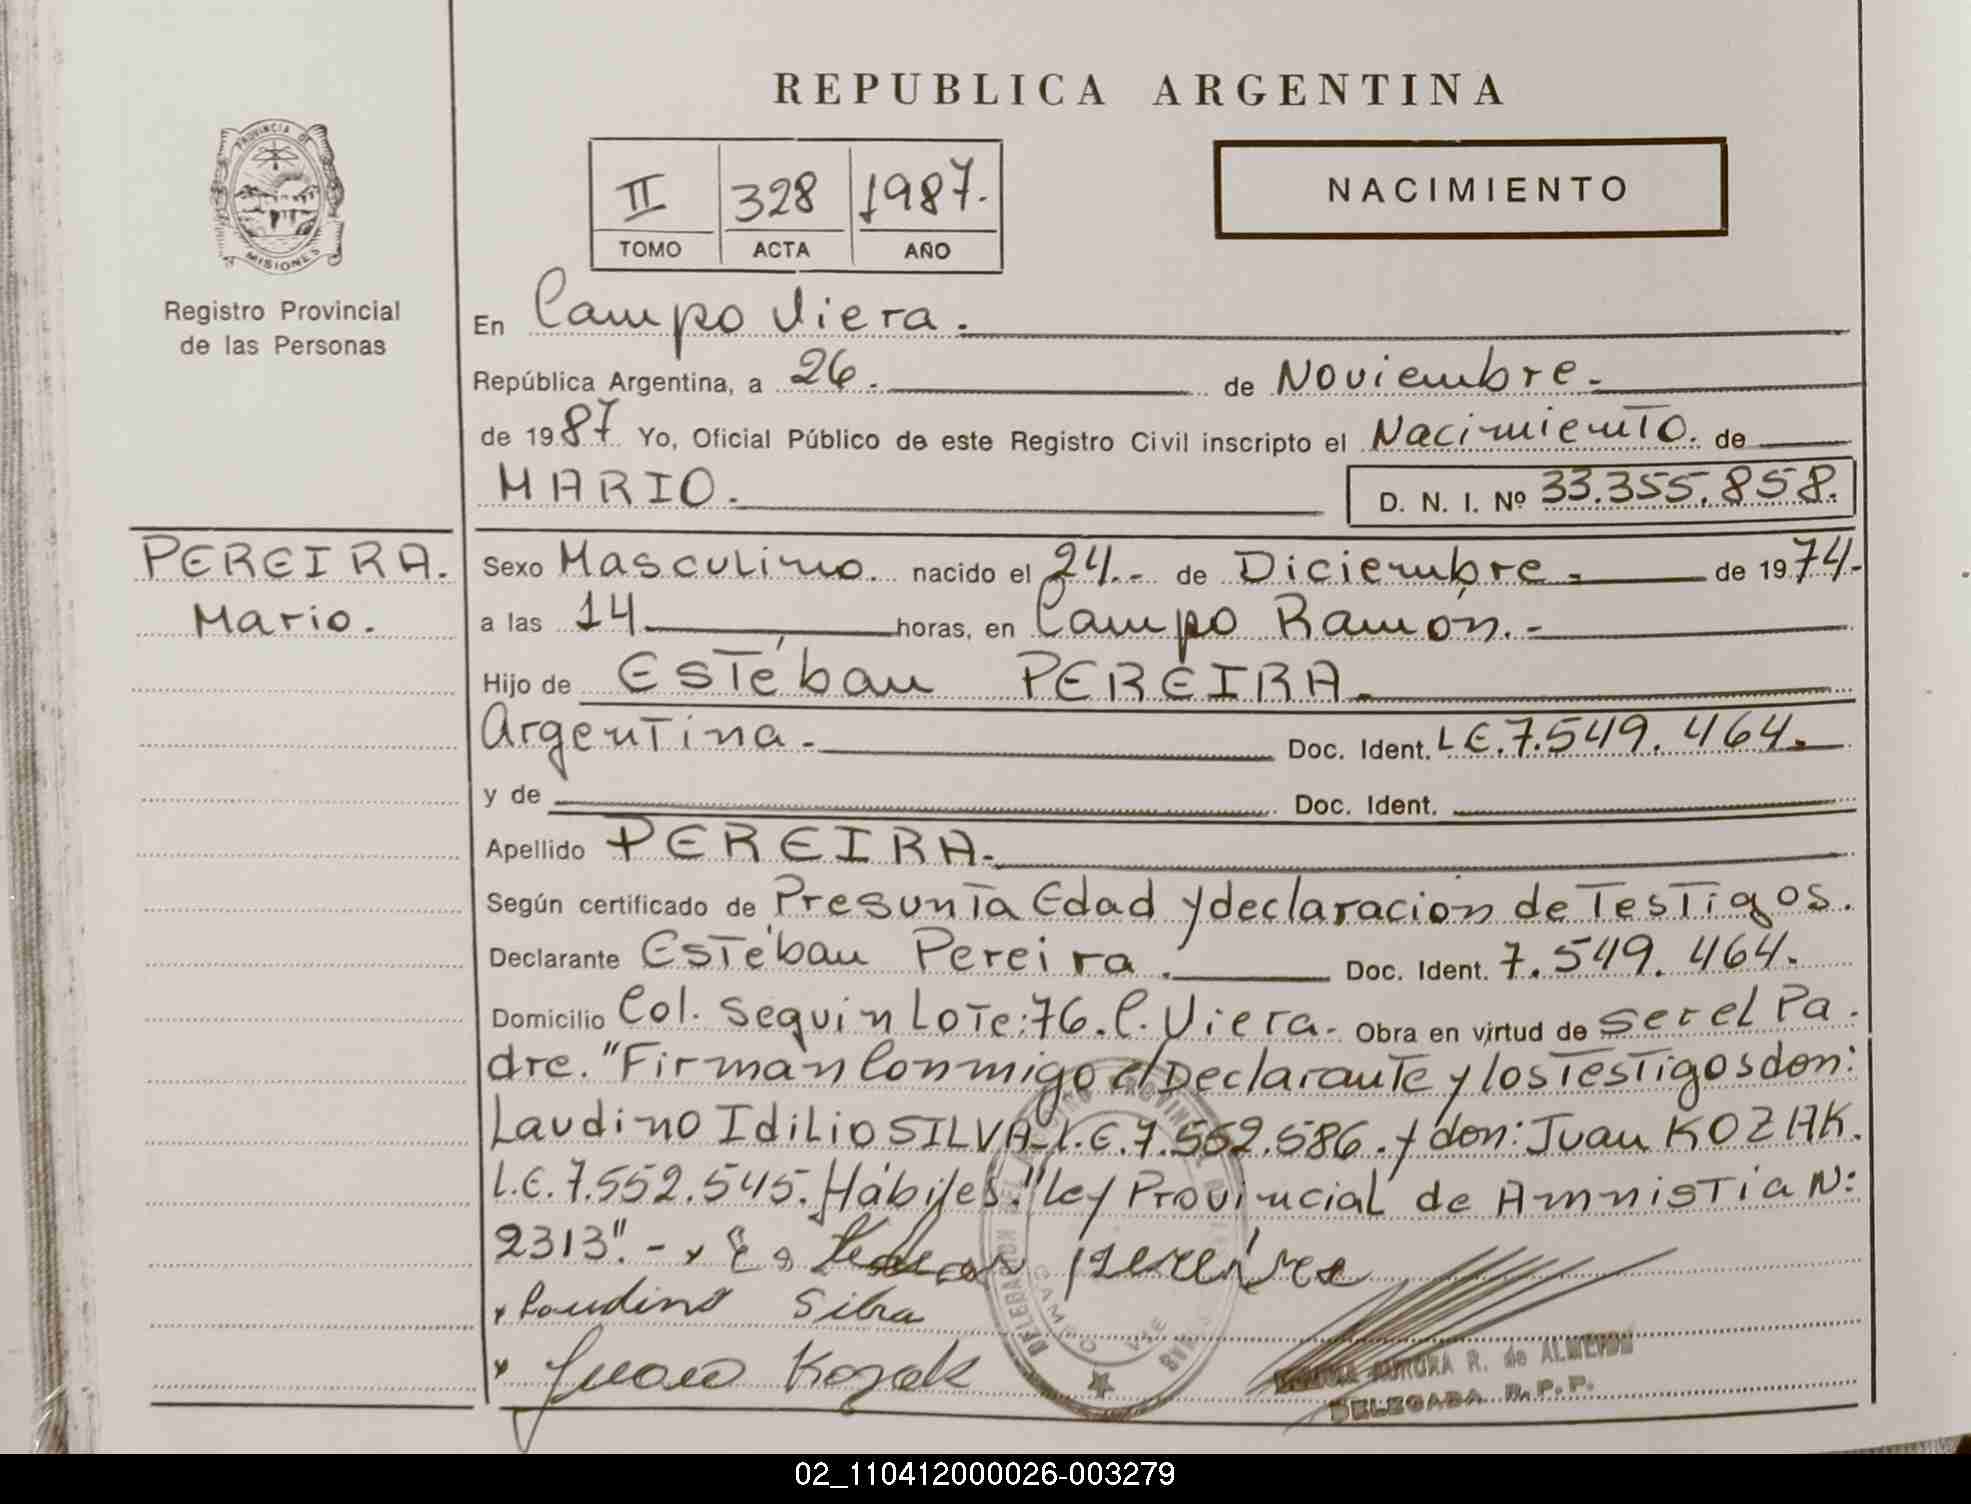 REPUBLICA ARGENTINA
PROVINCIA DE
MISIONES
Registro Provincial
de las Personas
II 328 1987.
TOMO ACTA AÑO
NACIMIENTO
En Campo Viera.
República Argentina, a 26. de Noviembre.
de 1987 Yo, Oficial Público de este Registro Civil inscripto el Nacimiento. de
MARIO. D. N. I. Nº 33.355.858.
PEREIRA.
Mario.
Sexo Masculino. nacido el 24.- de Diciembre.- de 1974.-
a las 14 horas, en Campo Ramón.-
Hijo de Estéban PEREIRA.
Argentina.- Doc. Ident. L.E.7.549.464.
y de Doc. Ident.
Apellido PEREIRA.
Según certificado de Presunta Edad y declaración de Testigos.
Declarante Estéban Pereira. Doc. Ident. 7.549.464.
Domicilio Col. Seguin Lote:76. C. Viera. Obra en virtud de ser el Pa-
dre. "Firman Conmigo el Declarante y los Testigos don:
Laudino Idilio SILVA L.E.7.552.586. y don: Juan KOZAK.
L.E.7.552.545. Hábiles." Ley Provincial de Amnistia N:
2313".- x Esteban pereira
x Laudino Silva
x Juan Kozak
AURORA R. de ALMEIDA
DELEGADA R.P.P.
02_110412000026-003279